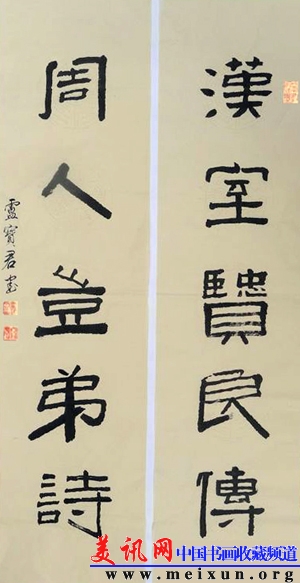 漢室賢良傳
周人豈弟詩
寶君書
美讯网 中国书画收藏频道
www.meixun.org